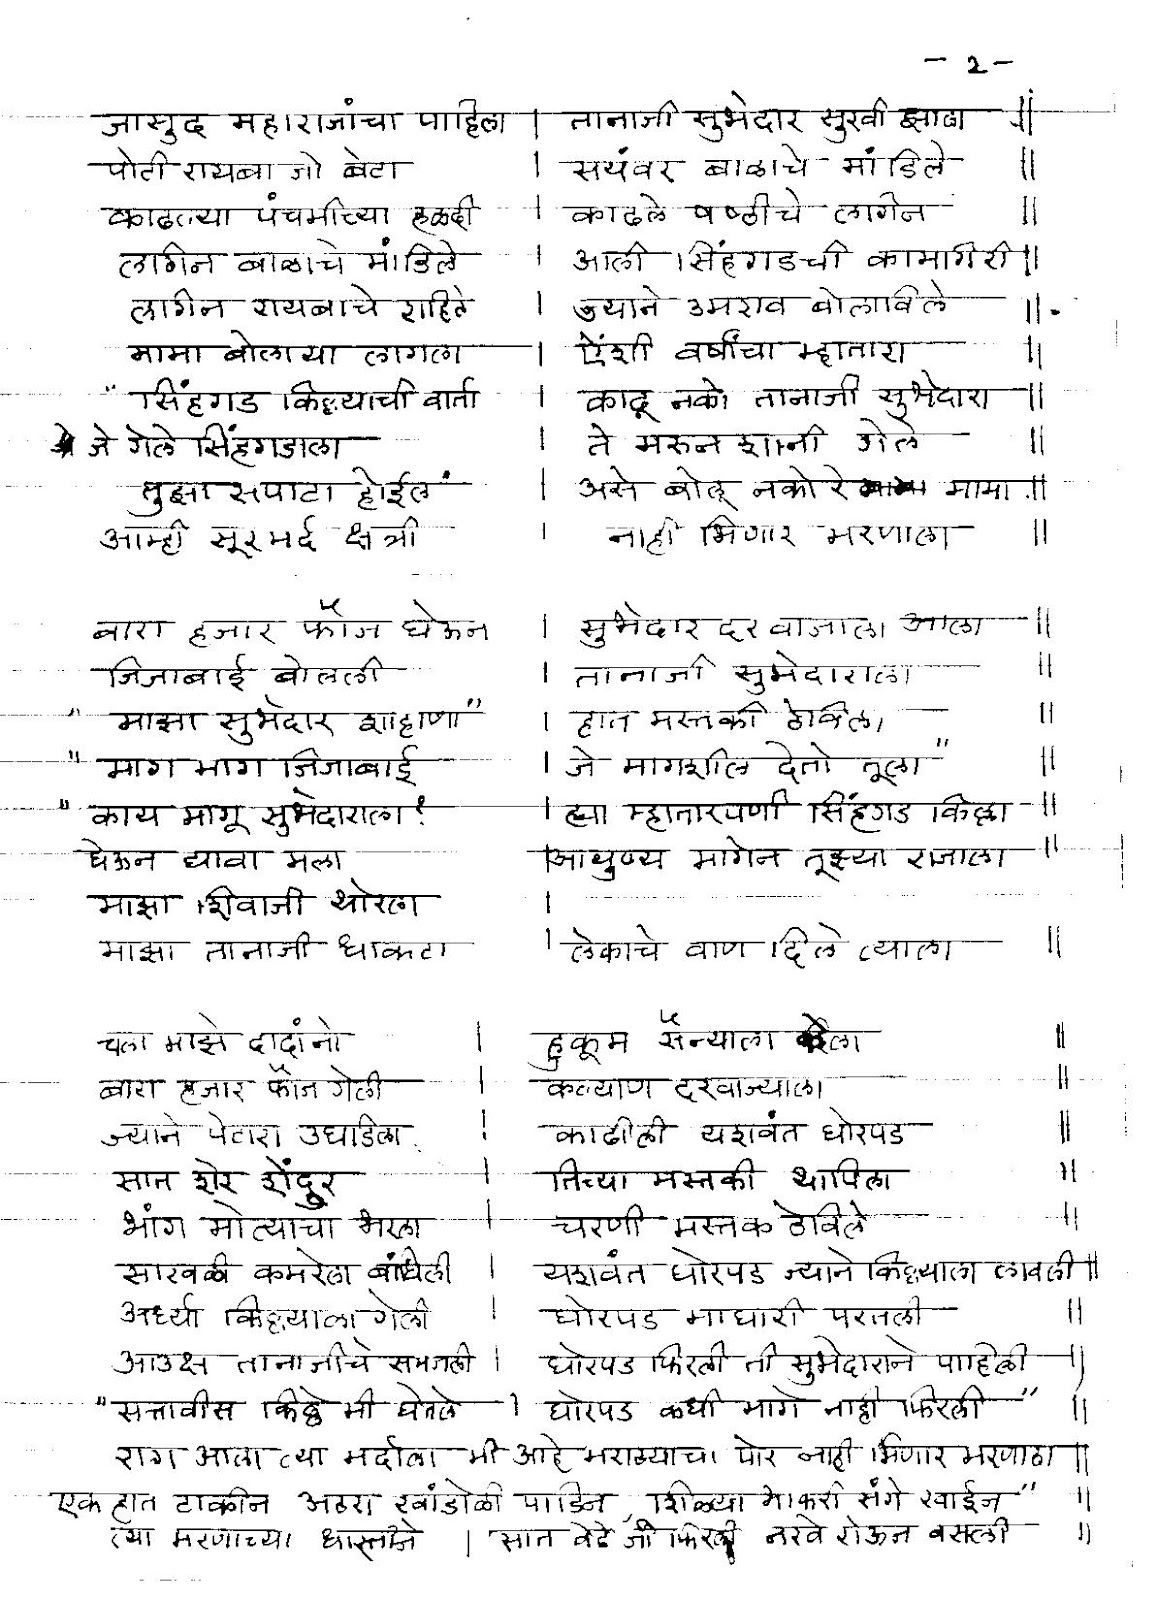 - २ -
जासुद महाराजांचा पाहिला | तानाजी सुभेदार सुखी झाला ||
पोटी रायबा जो बेटा | सयंवर बाळाचे मांडिले ||
काढल्या पंचमीच्या हळदी | काढले षष्ठीचे लागीन ||
लागीन बाळाचे मांडिले | आली सिंहगडची कामगिरी ||
लागीन रायबाचे राहिले | ज्याने उमराव बोलाविले ||
मामा बोलाया लागला | ऐंशी वर्षांचा म्हातारा ||
"सिंहगड किल्ल्याची वार्ता | काढू नको तानाजी सुभेदारा ||
जे गेले सिंहगडाला | ते मरून शानी गेले ||
तुझा सपाटा होईल | असे बोलू नको रे मामा ||
आम्ही सूरमर्द क्षत्री | नाही भिणार मरणाला ||
बारा हजार फौज घेऊन | सुभेदार दरवाजाला आला ||
जिजाबाई बोलली | तानाजी सुभेदाराला ||
"माझा सुभेदार शाहाणा" | हात मस्तकी ठेविला ||
"माग माग जिजाबाई | जे मागशील देतो तूला" ||
"काय मागू सुभेदाराला! | ह्या म्हातारपणी सिंहगड किल्ला ||
घेऊन द्यावा मला | आयुष्य मागेन तूझ्या राजाला ||
माझा शिवाजी थोरला |
माझा तानाजी धाकटा | लेकाचे वाण दिले त्याला ||
चला माझे दादांनो | हुकूम सैन्याला केला ||
बारा हजार फौज गेली | कल्याण दरवाज्याला ||
ज्याने पेटारा उघाडिला | काढीली यशवंत घोरपड ||
सात शेर शेंदुर | तिच्या मस्तकी थापिला ||
भांग मोत्याचा भरला | चरणी मस्तक ठेविले ||
साखळी कमरेला बांधिली | यशवंत घोरपड ज्याने किल्ल्याला लावली ||
अर्ध्या किल्ल्याला गेली | घोरपड माघारी परतली ||
आउक्ष तानाजीचे समजली | घोरपड फिरली ती सुभेदाराने पाहिली ||
"सत्तावीस किल्ले मी घेतले | घोरपड कधी मागे नाही फिरली" ||
राग आला त्या मर्दाला मी आहे मराठ्याचा पोर नाही भिणार मरणाला ||
एक हात टाकीन अठरा खांडोळी पाडिन, शिळ्या भाकरी संगे खाईन" ||
त्या मरणाच्या धास्तीने | सात वेढे जी फिरली नखे रोऊन बसली ||